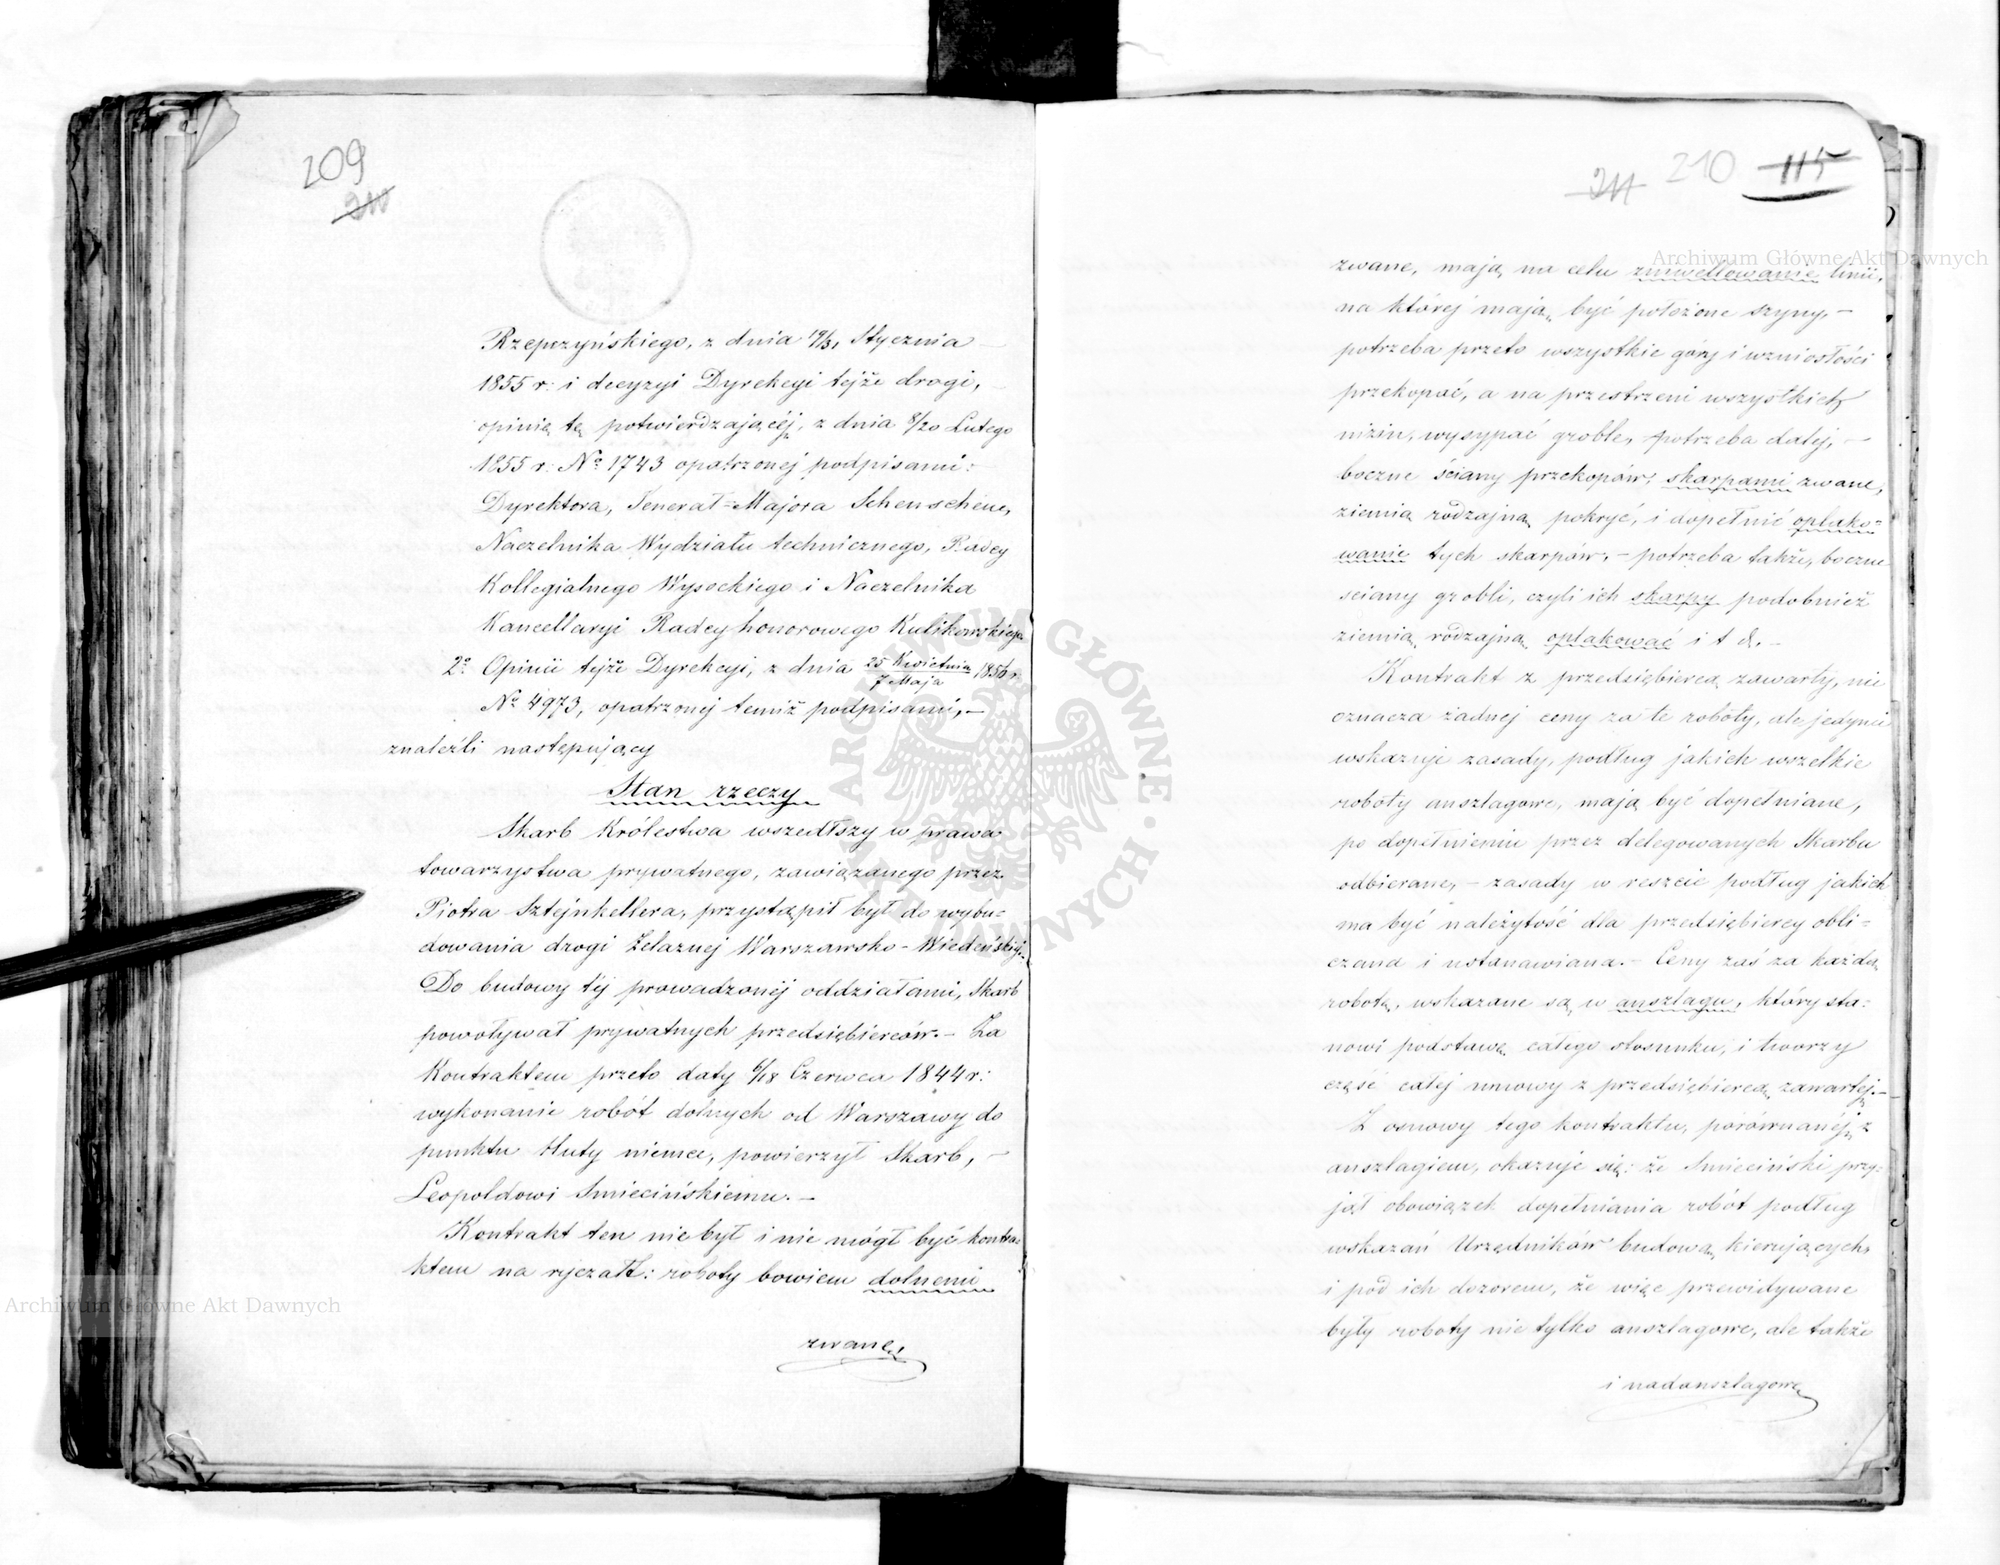 209
210
Rzepczyńskiego, z dnia 19/31 Stycznia —
1855 r: i decyzyi Dyrekcyi tejże drogi, —
opinię tę potwierdzającéj, z dnia 8/20 Lutego
1855 r: Nº 1743 opatrzonej podpisami:
Dyrektora, Jenerał=Majora Schenschene,
Naczelnika Wydziału technicznego, Radcy
Kollegialnego Wysockiego i Naczelnika
Kancellaryi Radcy honorowego Kulikowskiego
2º Opinii tejże Dyrekcyi, z dnia 25 Kwietnia/7 Maja 1856 r.
Nº 4973, opatrzonej temiż podpisami, —
znaleźli następujący
Stan rzeczy
Skarb Królestwa wszedłszy w prawa
towarzystwa prywatnego, zawiązanego przez
Piotra Sztejnkellera, przystąpił był do wybu=
dowania drogi Żelaznej Warszawsko-Wiedeńskiej.
Do budowy téj prowadzonéj oddziałami, Skarb
powoływał prywatnych przedsiębierców. — Za
Kontraktem przeto daty 6/18 Czerwca 1844 r:
wykonanie robót dolnych od Warszawy do
punktu Huty niemce, powierzył Skarb, —
Leopoldowi Smiecińskiemu. —
Kontrakt ten nie był i nie mógł być kontra=
ktem na ryczałt: roboty bowiem dolnemi
zwane,
211 210 115
zwane, mają na celu zniwellowanie linii,
na której mają być położone szyny, —
potrzeba przeto wszystkie góry i wzniosłości
przekopać, a na przestrzeni wszystkich
nizin, wysypać groble, potrzeba dalej, —
boczne ściany przekopów, skarpami zwane,
ziemią rodzajną pokryć, i dopełnić opłako=
wanie tych skarpów, — potrzeba także, boczne
ściany grobli, czyli ich skarpy podobnież
ziemią rodzajną opłakować i t d. —
Kontrakt z przedsiębiercą zawarty, nie
oznacza żadnej ceny za te roboty, ale jedynie
wskazuje zasady, podług jakich wszelkie
roboty anszlagowe, mają być dopełniane,
po dopełnieniu przez delegowanych Skarbu
odbierane, — zasady w reszcie podług jakich
ma być należytość dla przedsiębiercy obli=
czana i ustanawiana. — Ceny zaś za każdą
robotę, wskazane są w anszlagu, który sta=
nowi podstawę całego stosunku, i tworzy
część całej umowy z przedsiębiercą zawartej. —
Z osnowy tego kontraktu, porównanéj z
anszlagiem, okazuje się: że Smieciński przy=
jął obowiązek dopełniania robót podług
wskazań Urzędników budową kierujących,
i pod ich dozorem, że więc przewidywane
były roboty nie tylko anszlagowe, ale także
i nadanszlagowe
ARCHIWUM GŁÓWNE AKT DAWNYCH
Archiwum Główne Akt Dawnych
Archiwum Główne Akt Dawnych